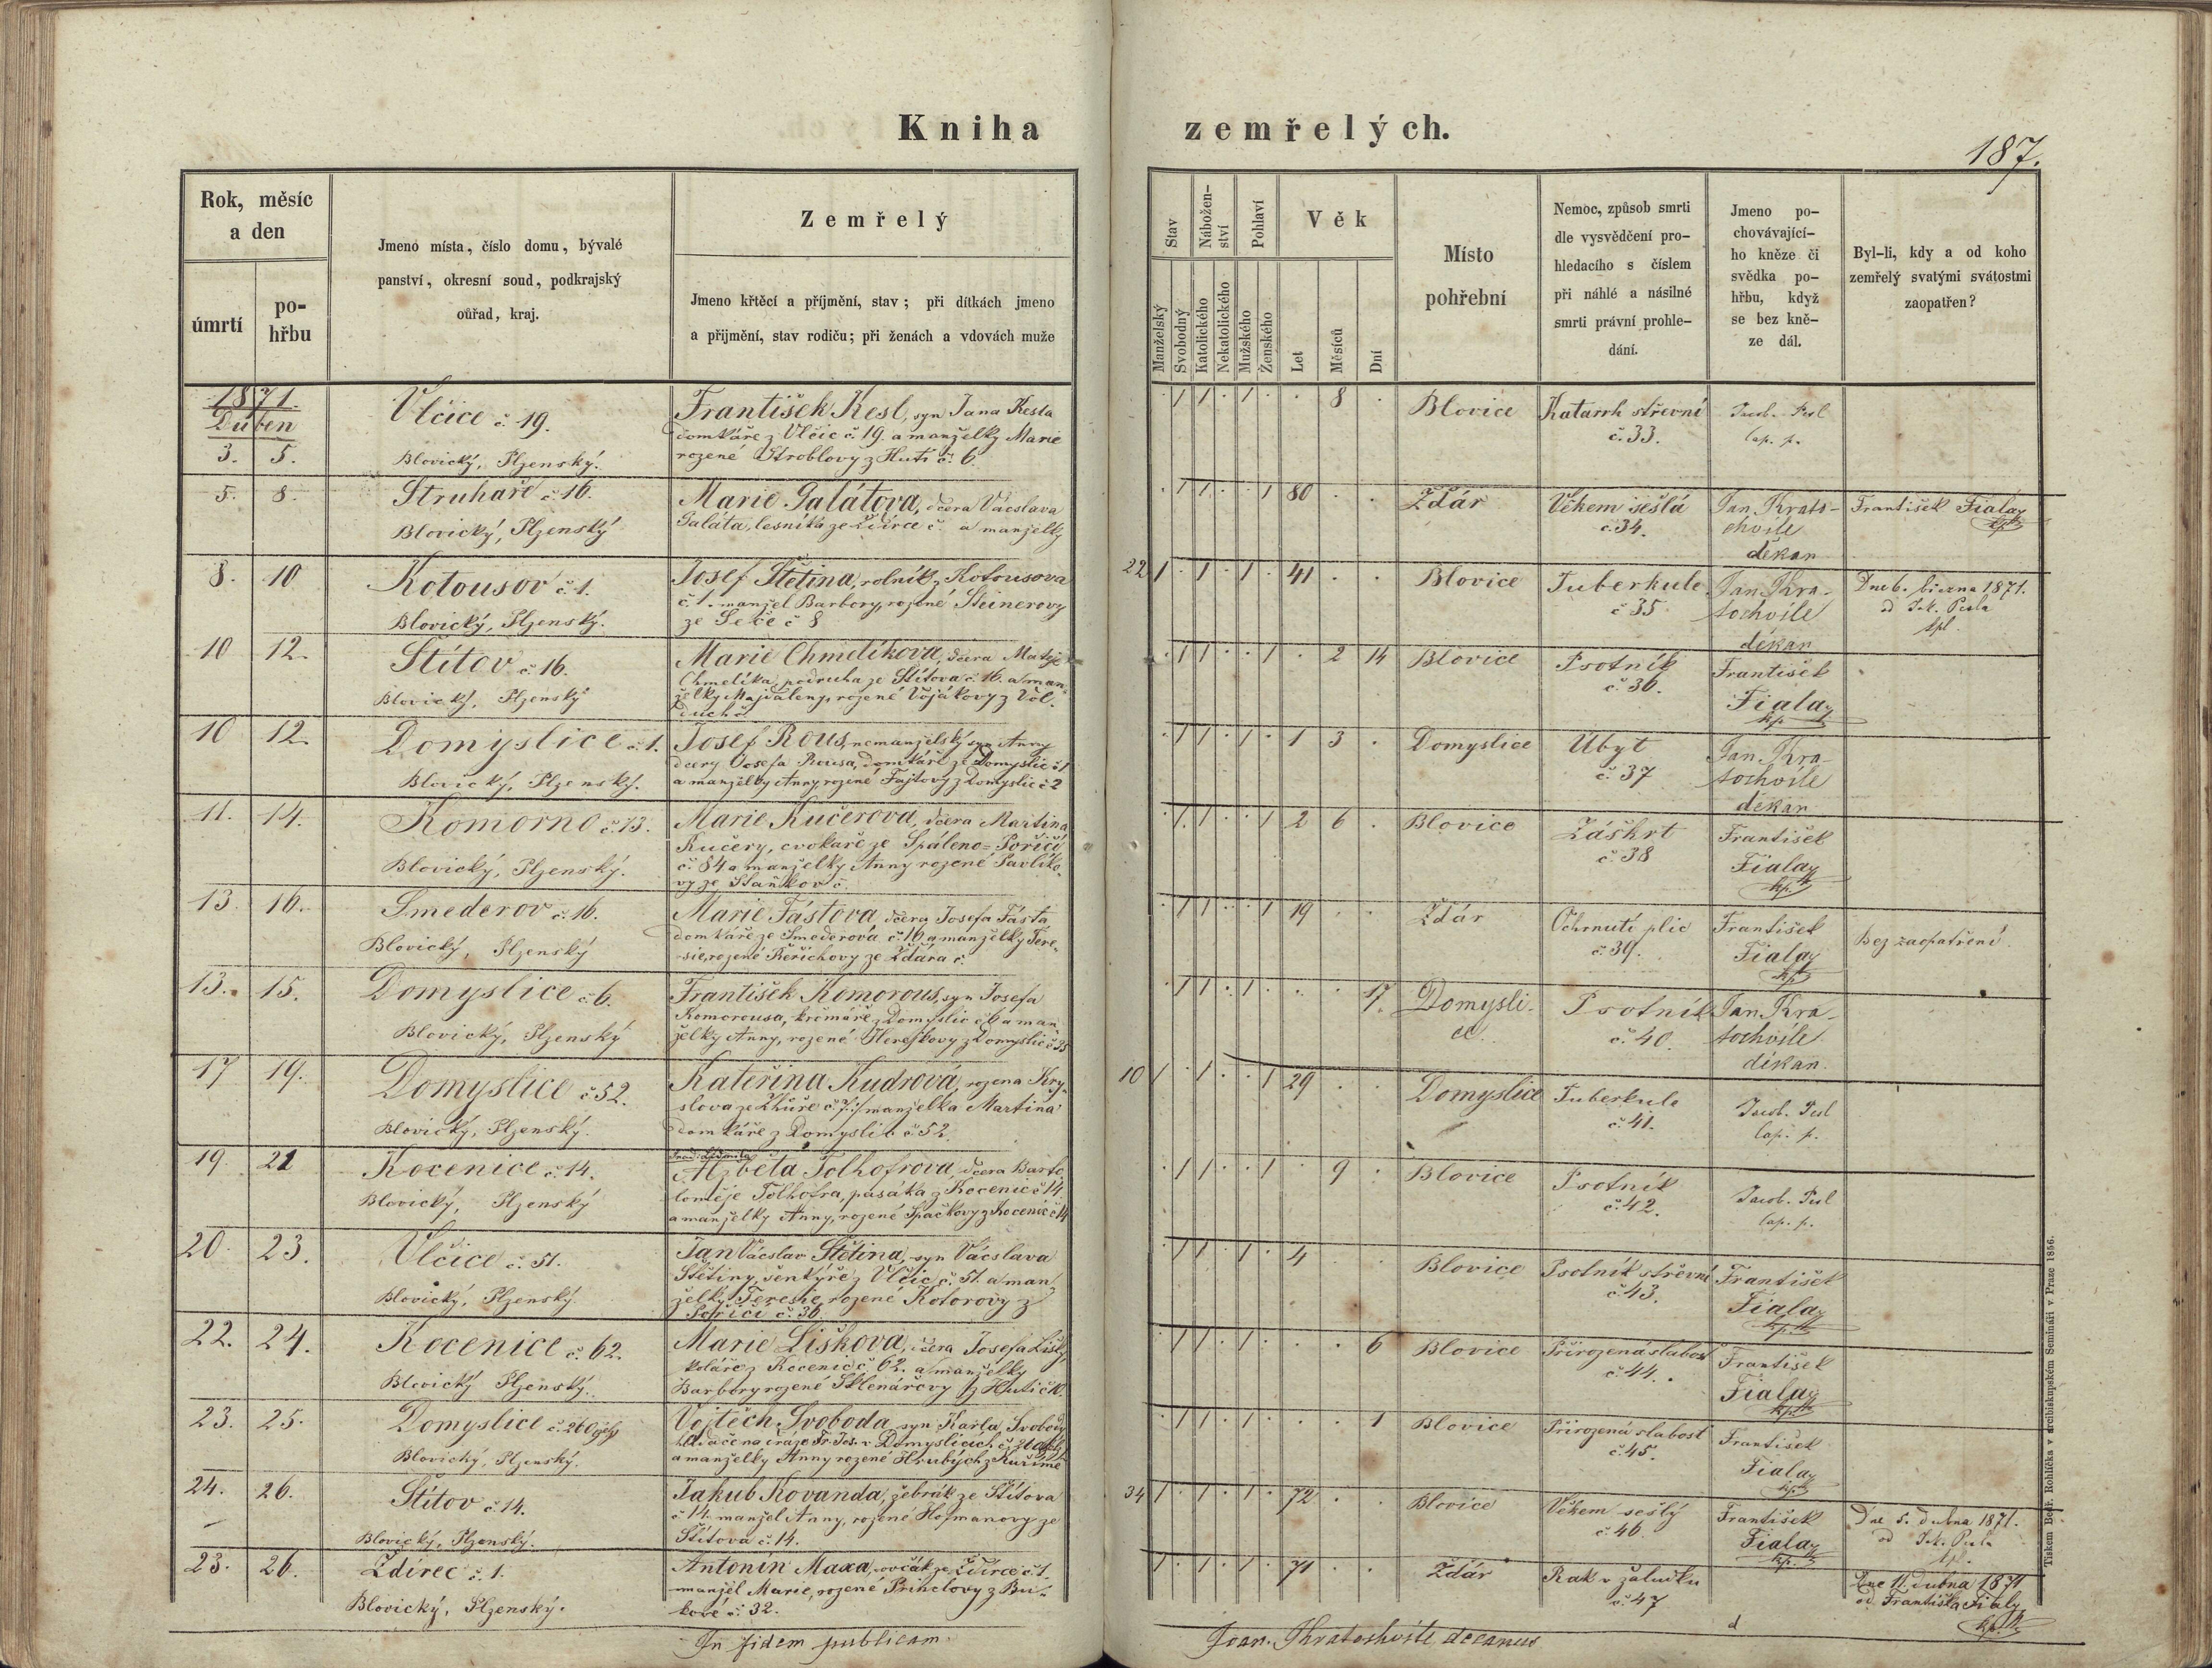 Kniha zemřelých.
187.
Rok, měsíc
a den
úmrtí
po-
hřbu
Jmeno místa, číslo domu, bývalé
panství, okresní soud, podkrajský
ouřad, kraj.
Zemřelý
Jmeno křtěcí a příjmění, stav; při dítkách jmeno
a přijmění, stav rodiču; při ženách a vdovách muže
Stav
Nábožen-
ství
Pohlaví
Věk
Manželský
Svobodný
Katolického
Nekatolického
Mužského
Ženského
Let
Měsíců
Dní
Místo
pohřební
Nemoc, způsob smrti
dle vysvědčení pro-
hledacího s číslem
při náhlé a násilné
smrti právní prohle-
dání.
Jmeno po-
chovávající-
ho kněze či
svědka po-
hřbu, když
se bez kně-
ze dál.
Byl-li, kdy a od koho
zemřelý svatými svátostmi
zaopatřen?
1871.
Duben
3. 5.
Vlčice č. 19.
Blovický, Plzenský.
František Kesl, syn Jana Kesla
domkáře z Vlčic č. 19. a manželky Marie
rozené Štroblovy z Huti č. 6.
1 1 1 8
Blovice
Katarrh střevní
č. 33.
Jacob. Pesl
Cap. p.
5. 8.
Struhaře č. 16.
Blovický, Plzenský
Marie Galátova, dcera Vácslava
Galáta, lesníka ze Ždírce č. a manželky
1 1 1 80
Ždár
Věkem sešlá
č. 34.
Jan Krato-
chvíle
děkan
František Fiala
kp.
8. 10
Kotousov č. 1.
Blovický, Plzenský.
Josef Štětina, rolník z Kotousova
č. 1. manžel Barbory, rozené Šteinerovy
ze Seče č 8
22 1 1 1 41
Blovice
Tuberkule
č 35
Jan Kra-
tochvíle
děkan
Dne 6. března 1871.
od Jak. Pesla
kpl.
10 12.
Štítov č. 16.
Blovický, Plzenský
Marie Chmelíkova, dcera Matěje
Chmelíka, podruha ze Štítova č. 16. a man-
želky Majdaleny, rozené Vojákovy z Vol-
duch č.
1 1 1 2 14
Blovice
Psotník
č. 36.
František
Fiala
kp.
10 12.
Domyslice č. 1.
Blovický, Plzenský.
Josef Rous, nemanželský syn Anny
dcery Josefa Rousa, domkáře ze Domyslic č. 1
a manželky Anny, rozené Fajtovy z Domyslic č. 2
1 1 1 1 3
Domyslice
Úbyt
č. 37
Jan Kra-
tochvíle
děkan
11. 14.
Komorno č. 13.
Blovický, Plzenský.
Marie Kučerova, dcera Martina
Kučery, cvokaře ze Spáleno-Poříčí
č. 84 a manželky Anny rozené Pavlíko-
vy ze Staňkov č.
1 1 1 2 6
Blovice
Záškrt
č. 38
František
Fiala
kp.
13. 16.
Smederov č. 16.
Blovický, Plzenský
Marie Fástova, dcera Josefa Fásta
domkáře ze Smederova č. 16 a manželky Tere-
sie, rozené Řeřichovy ze Ždára č.
1 1 1 19
Ždár
Ochrnutí plic
č. 39.
František
Fiala
kp.
Bez zaopatření.
13. 15.
Domyslice č. 6.
Blovický, Plzenský
František Komorous, syn Josefa
Komorousa, krčmáře z Domyslic č. 6 a man-
želky Anny, rozené Herejkovy z Domyslic č. 35
1 1 1 17.
Domysli-
ce.
Psotník
č. 40.
Jan Kra-
tochvíle
děkan.
17 19.
Domyslice č 52.
Blovický, Plzenský.
Kateřina Kudrová, rozena Kry-
slova ze Zhůře č. 7. manželka Martina
domkáře z Domyslic č. 52.
10 1 1 1 29
Domyslice
Tuberkule
č. 41.
Jacob. Pesl
Cap. p.
19. 21
Kocenice č. 14.
Blovický, Plzenský
Alžběta Tolhofrova, dcera Barto-
loměje Tolhofra, pasáka z Kocenic č 14
a manželky Anny, rozené Špačkovy z Kocenic č. 14
1 1 1 9
Blovice
Psotník
č. 42.
Jacob. Pesl
Cap. p.
20. 23.
Vlčice č. 51.
Blovický, Plzenský.
Jan Vácslav Štětina, syn Vácslava
Štětiny, šenkýře z Vlčic č. 51. a man-
želky Teresie, rozené Kotorovy z
Poříčí č. 36.
1 1 1 4
Blovice
Psotník střevní
č. 43.
František
Fiala
kp.
22. 24.
Kocenice č. 62.
Blovický Plzenský.
Marie Lišková, dcera Josefa Lišky,
koláře z Kocenic č. 62. a manželky
Barbory rozené Sklenářovy z Huti č 10.
1 1 1 6
Blovice
Přirozená slabost
č. 44.
František
Fiala
kp.
23. 25.
Domyslice č. 260
Blovický, Plzenský.
Vojtěch Svoboda, syn Karla Svobody
hlídače na dráze Fr. Jos. v Domyslicích č.
a manželky Anny rozené Hrubých z Kuřímě
1 1 1 1
Blovice
Přirozená slabost
č. 45.
František
Fiala
kp.
24. 26.
Štítov č. 14.
Blovický, Plzenský.
Jakub Kovanda, žebrák ze Štítova
č 14. manžel Anny, rozené Hofmanovy ze
Štítova č. 14.
34 1 1 1 72
Blovice
Věkem sešlý
č. 46
František
Fiala
kp.
Dne 5. dubna 1871.
od Jak. Pesla
kpl.
23. 26.
Ždírec č. 1.
Blovický, Plzenský.
Antonín Maxa, ovčák ze Ždírce č. 1.
manžel Marie, rozené Princlovy z Bu-
kové č. 32.
1 1 1 71
Ždár
Rak v žaludku
č. 47
Dne 11. dubna 1871
od Františka Fialy
kp.
In fidem publicam.
Joan. Khratochvile decanus
Tiskem Bedř. Rohlíčka v arcibiskupském Semináři v Praze 1856.